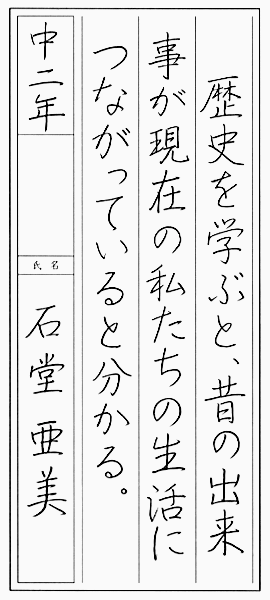 歴史を学ぶと、昔の出来
事が現在の私たちの生活に
つながっていると分かる。
中二年
氏名
石堂亜美